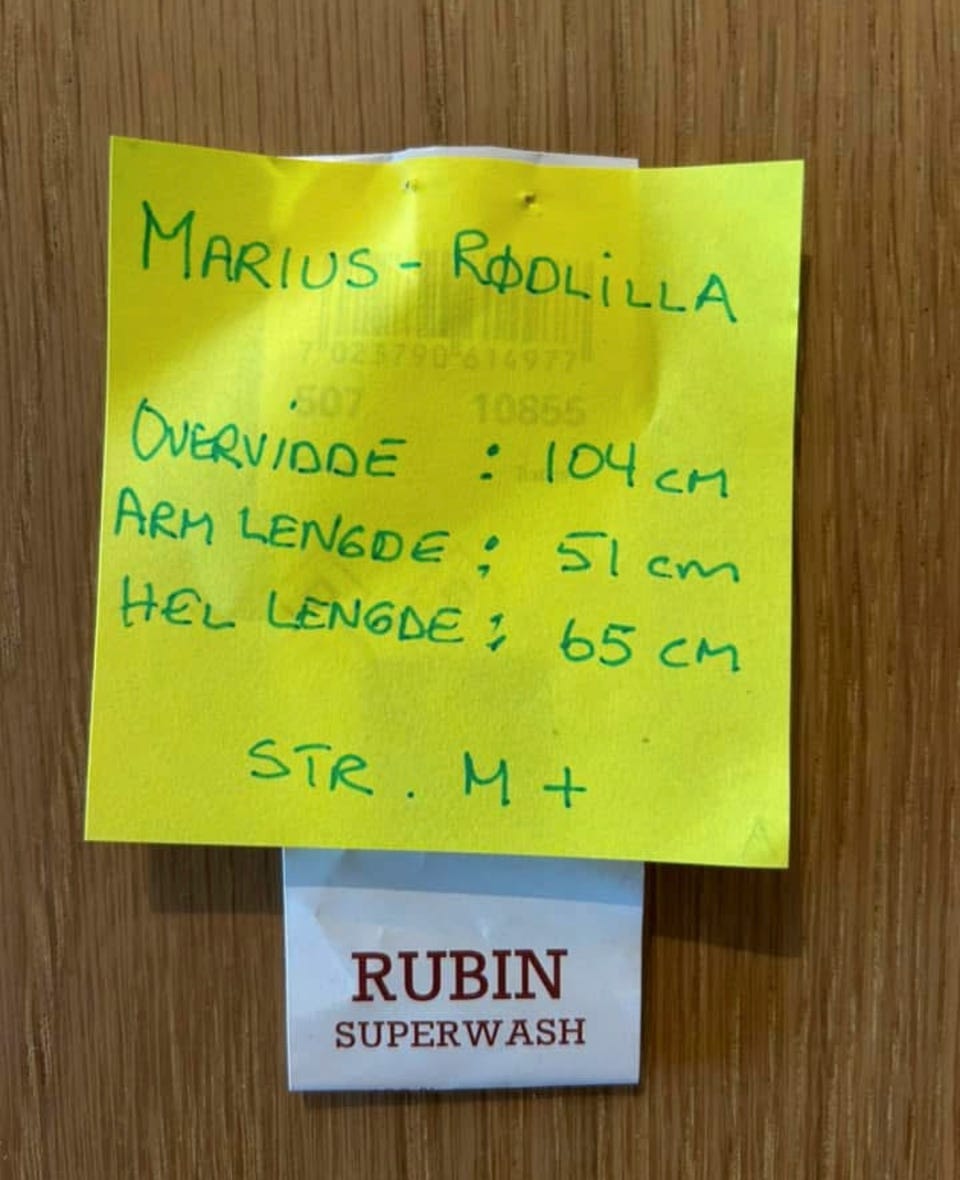 MARIUS - RØDLILLA
7 023790 614977
507 10855
OVERVIDDE : 104 cm
ARM LENGDE : 51 cm
HEL LENGDE : 65 cm
STR. M +
RUBIN
SUPERWASH